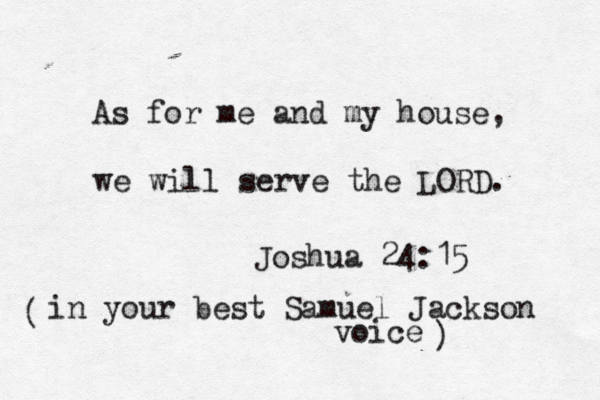 As for me and my house,
we will serve the LORD.
Joshua 24:15
(in your best Samuel Jackson
voice)